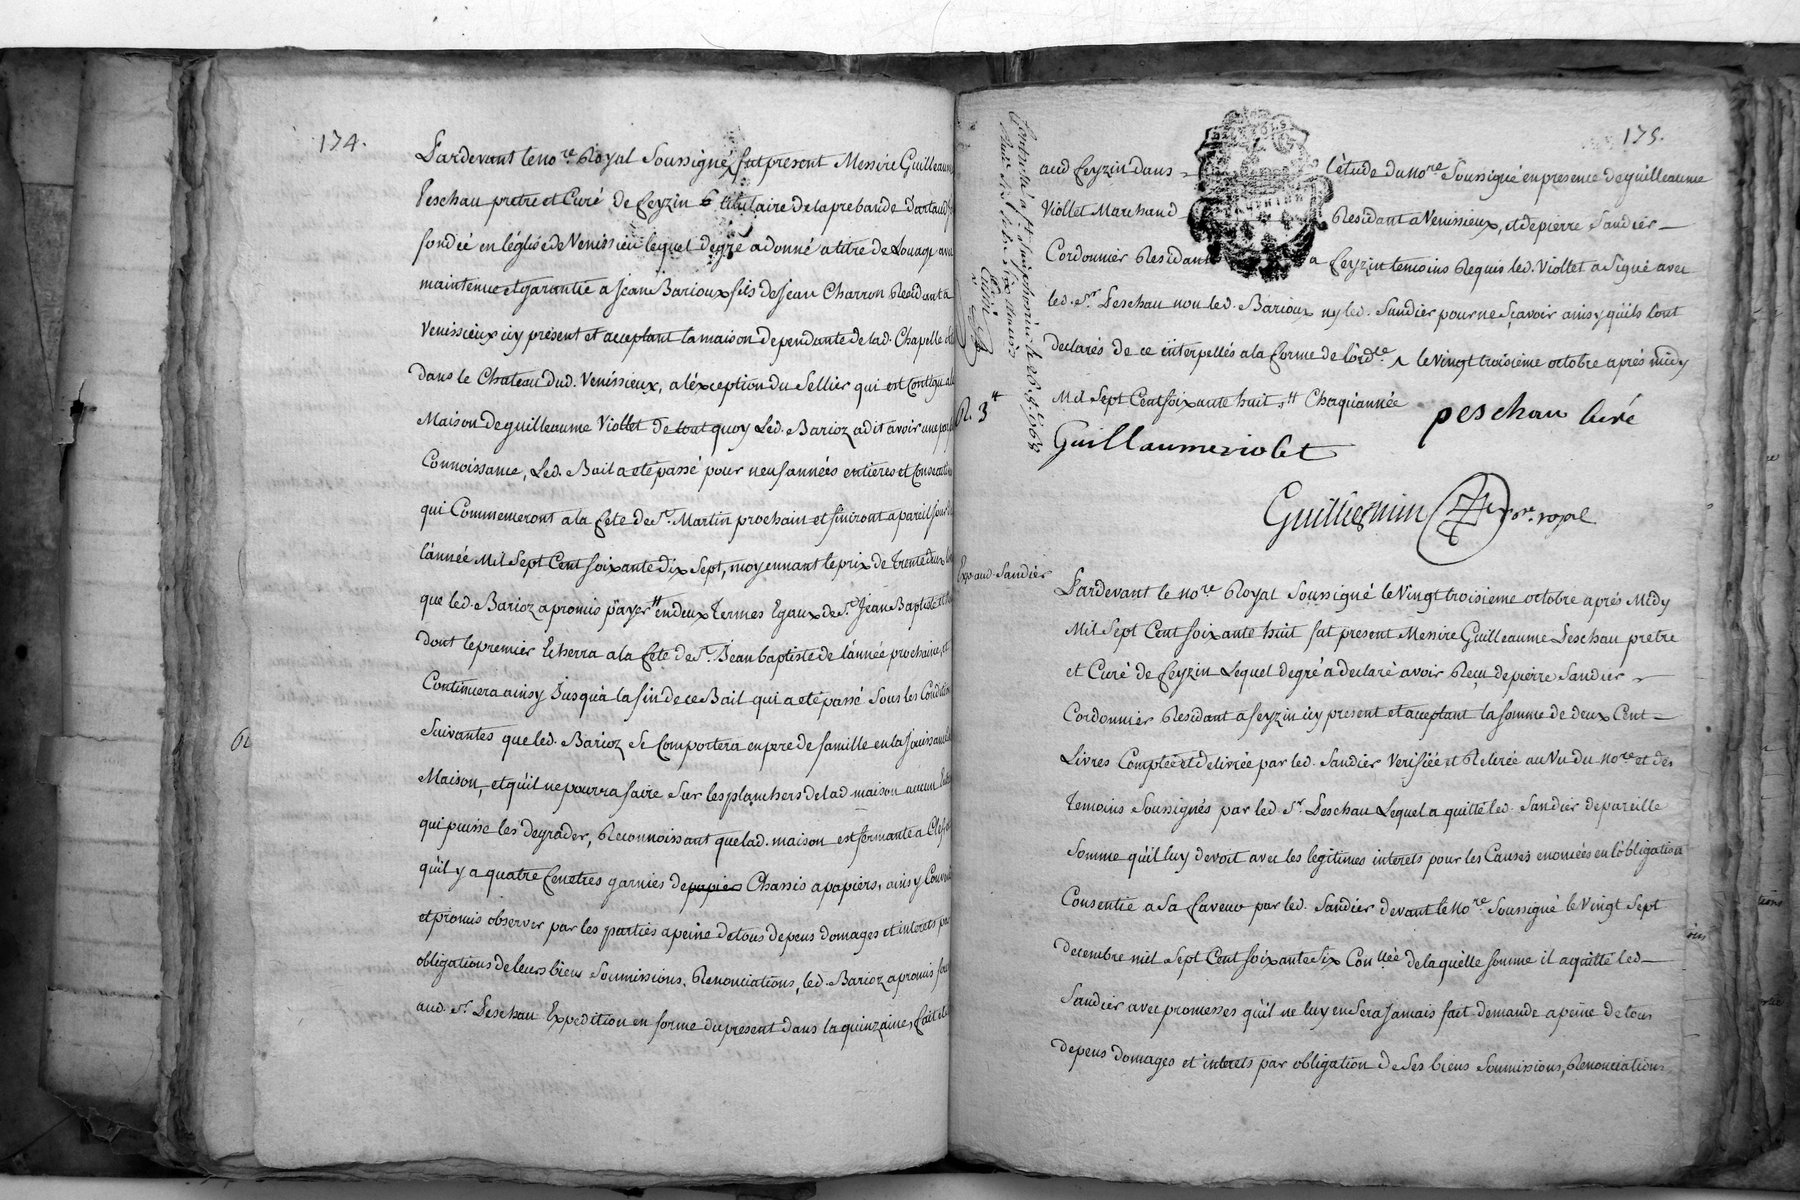 174.
Pardevant le no.re Royal Soussigné, fut present Messire Guilleaume
Peschau pretre et Curé de feyzin & titulaire de la prebande Dartaud
fondée en l'église de Venissieu lequel degré a donné a titre de Louage avec
maintenue et garantie a Jean Barioux fils de Jean Charron Residant a
Venissieux icy present et acceptant la maison dependante de lad. Chapelle
dans le Chateau dud. Venissieux, a l'éxception du Sellier qui est contigu a la
Maison de guilleaume Viollet de tout quoy Led. Barioz a dit avoir une
Connoissance, Led. Bail a eté passé pour neuf années entieres et Consecutives
qui Commenceront a la fete de St. Martin prochain et finiront a pareil jour
l'année Mil Sept Cent soixante dix Sept, moyennant le prix de Trente deux
que led. Barioz a promis payer en deux Termes Egaux de St. Jean Baptiste et
dont le premier Echerra a la fete de St. Jean baptiste de l'année prochaine, et
Continuera ainsy Jusqu'a la fin de ce Bail qui a eté passé Sous les Conditions
Suivantes que led. Barioz Se Comportera en pere de famille en la jouissance
Maison, et qu'il ne pourra faire Sur les planchers de lad maison aucun
qui puisse les degrader, Reconnoissant que lad. maison est fermante a Clef
qu'il y a quatre fenetres garnies de papier Chassis a papiers, ainsy Convenu
et promis observer par les parties a peine de tous depens domages et interets par
obligations de leurs biens Soumissions, Renonciations, led. Barioz a promis
aud. Sr. Peschau Expedition en forme du present dans la quinzaine, fait et
175.
aud feyzin dans l'étude du no.re Soussigné en presence de guilleaume
Viollet Marchand Residant a Venissieux, et de pierre Sandier
Cordonnier Residant a feyzin temoins Requis led. Viollet a Signé avec
led. Sr. Peschau non led. Barioux ny led. Sandier pour ne sçavoir ainsy qu'ils l'ont
declarés de ce interpellés a la forme de l'ord.ce le Vingt troisieme octobre aprés midy
Mil Sept Cent soixante huit Chaqu'année
R. 3 tt
peschau curé
Guillaume violet
Guillermin no.re royal
Exp. aud. Sandier
Pardevant le no.re Royal Soussigné le Vingt troisieme octobre aprés Midy
Mil Sept Cent soixante huit fut present Messire Guilleaume Peschau pretre
et Curé de feyzin Lequel degré a declaré avoir Reçu de pierre Sandier
Cordonnier Residant a feyzin icy present et acceptant la somme de deux Cent
Livres Comptée et delivrée par led. Sandier Verifiée et Retirée au Vu du no.re et des
Temoins Soussignés par led. Sr. Peschau Lequel a quitté led. Sandier de pareille
Somme qu'il luy devoit avec les legitimes interets pour les Causes enoncées en l'obligation
Consentie a Sa faveur par led. Sandier devant le no.re Soussigné le Vingt Sept
decembre mil Sept Cent soixante Six Con.llée de laquelle somme il a quitté led.
Sandier avec promesses qu'il ne luy en Sera jamais fait demande a peine de tous
depens domages et interets par obligation de Ses biens Soumissions, Renonciations